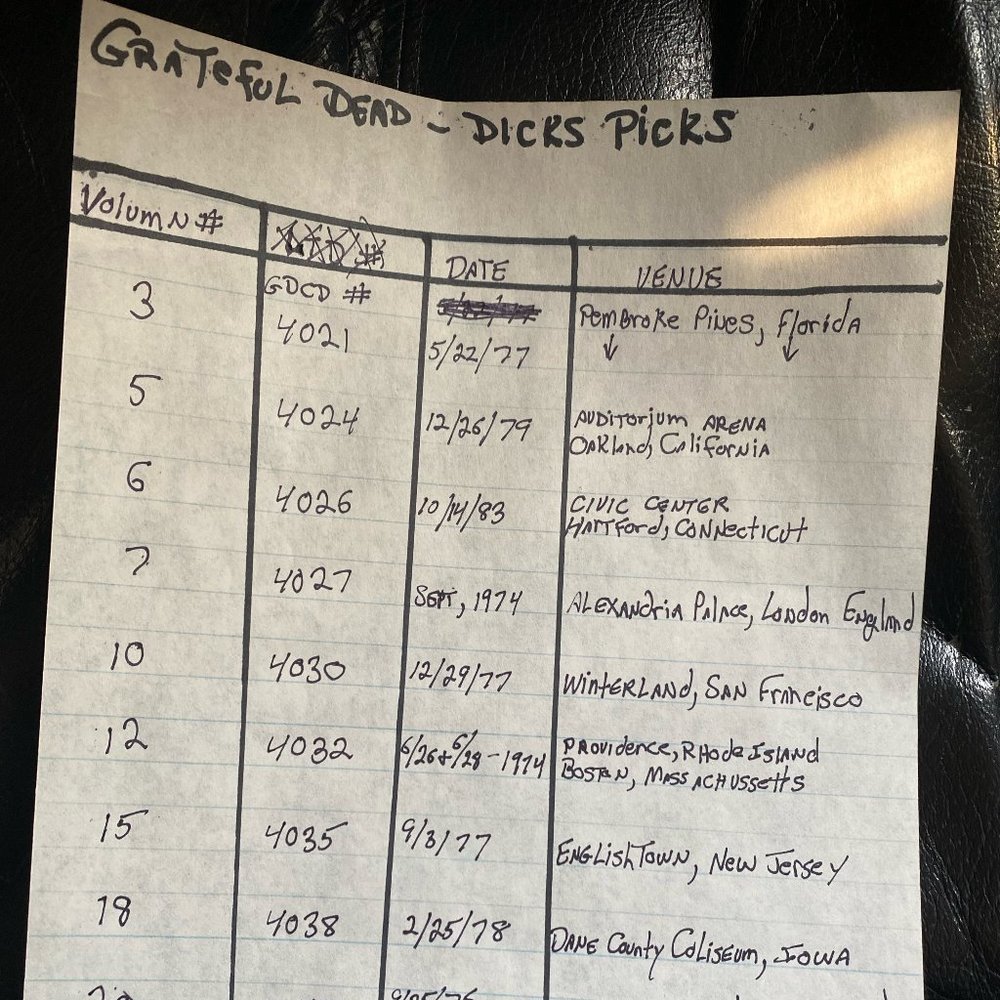 GRATEFUL DEAD - DICKS PICKS
VolumN # DATE VENUE
GDCD #
3 4021 5/22/77 PEMBROKE PINES, florida
5 4024 12/26/79 AUDITORIUM ARENA
OAKLAND, CALIFORNIA
6 4026 10/14/83 CIVIC CENTER
HARTFORD, CONNECTICUT
7 4027 SEPT, 1974 ALEXANDRIA PALACE, LONDON ENGLAND
10 4030 12/29/77 WINTERLAND, SAN FRANCISCO
12 4032 6/26+6/28-1974 PROVIDENCE, RHODE ISLAND
BOSTON, MASSACHUSSETTS
15 4035 9/3/77 ENGLISHTOWN, NEW JERSEY
18 4038 2/25/78 DANE COUNTY COLISEUM, IOWA